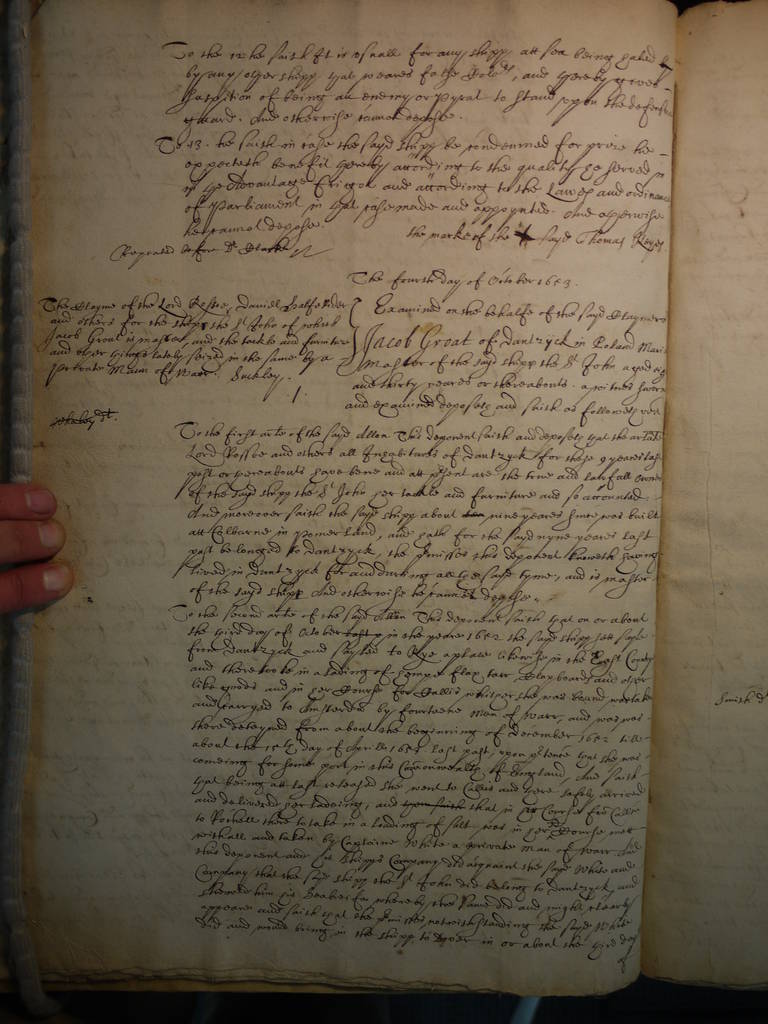 To the 12 he saith It is usuall for any shipp att sea being hailed
by any other shipp that weares false Colors, and thereby gives
suspition of being an enemy or pyrat to stand upon the defensive
guard. And otherwise cannot depose.
To 13. he saith in case the sayd shipp be condemned for prize he
expecteth benefit thereby according to the quality he served in
in the Advantage Friggot and according to the Lawes and ordinances
of Parliament in that case made and appoynted. And otherwise
he cannot depose.
the marke of the sayd Thomas Keyes
Repeated before Dr Clarke
The fourth day of October 1653.
The Clayme of the Lord Rosse, Daniell
and others for the shipp the St John of which
Jacob Groat is master, and the tackle and furniture
and other things lately seized in the same by a
private Mann of Warr. Suckley.
1.
Examined on the behalfe of the said Claymers
Jacob Groat of Dantzyck in Poland Mariner
master of the sayd shipp the St John aged eight
and thirty yeares or thereabouts a witnes sworne
and examined deposeth and saith as followeth vizt
To the first arle of the sayd Allon This deponent saith and deposeth that the arlate
Lord Rosse and others all Inhabitants of Dantzyck for these 9 yeares last
past or thereabouts have bene and att present are the true and lawfull owners
of the sayd shipp the St John her tackle and furniture and so accounted.
And moreover saith the sayd shipp about nine yeares since was built
att Colberne in Pomerland, and hath for the sayd nyne yeares last
past belonged to Dantzyck, the premisses this deponent knoweth having
lived in Dantzyck for and during all the sayd tyme, and is master
of the sayd shipp And otherwise he cannot depose.
To the second arle of the sayd Allon This deponent saith that on or about
the third day of October in the yeare 1652 the sayd shipp sett sayle
from Dantzyck and sayled to Rye a place likewise in the East Country
and there tooke in a lading of hempe flax tarr, Clapboards and other
like goods and in her Course for Callis whither she was bound was taken
and carryed to Amsterdam by fourteene Men of Warr, and was
there deteyned from about the beginning of December 1652 till
about the 15th day of Aprill 1653 last past, upon pretence that she was
comeing for some port in this Commonwealth of England, And saith
that being att last released she went to Callis and there safely arrived
and delivered her ladeing, and that in her Course from Callis
to Rochell there to take in a lading of salt was in her Course mett
withall and taken by Captaine White a private Man of Warr And
this deponent and his shipps Company did acquaint the sayd White and
Company that the sayd shipp the St John did belong to Dantzyck, and
shewed him his Seabriefe whereby the same did and might clearly
appeare and saith that the premisses notwithstanding the sayd White
did and would bring in the shipp to Dover in or about the third day
of